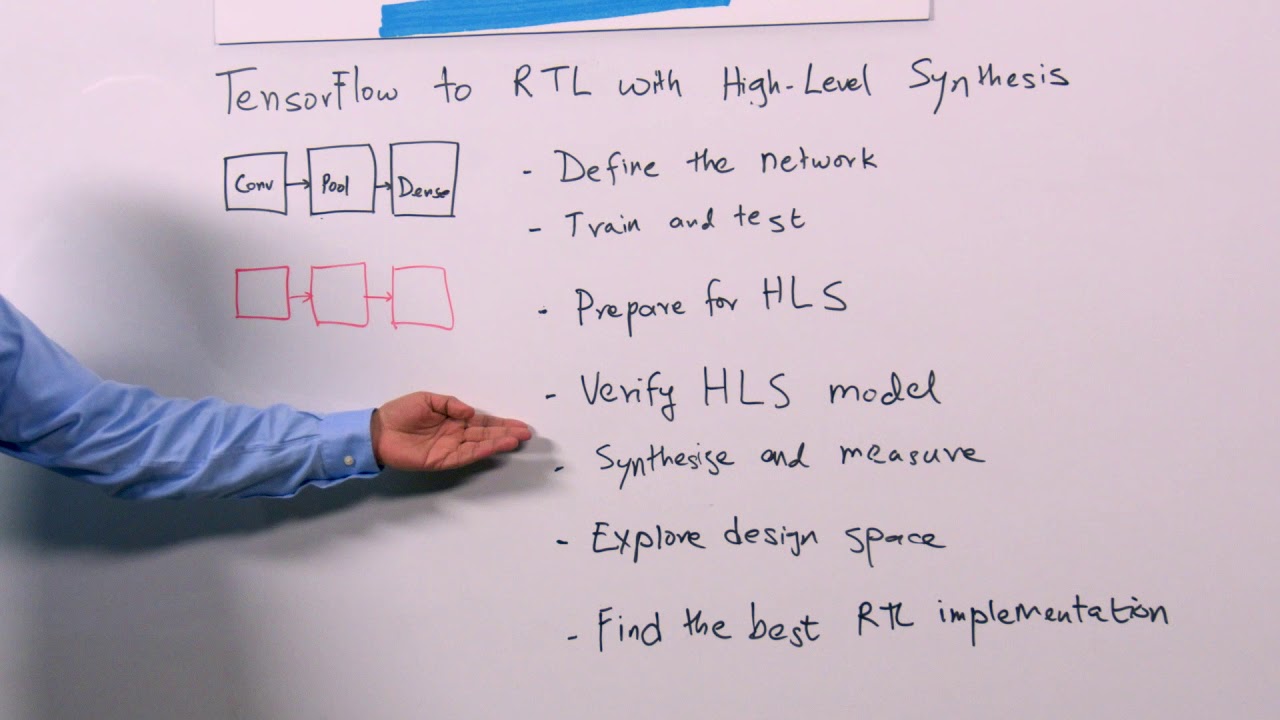 TensorFlow to RTL with High-Level Synthesis
Conv Pool Dense
- Define the network
- Train and test
- Prepare for HLS
- Verify HLS model
- Synthesize and measure
- Explore design space
- Find the best RTL implementation